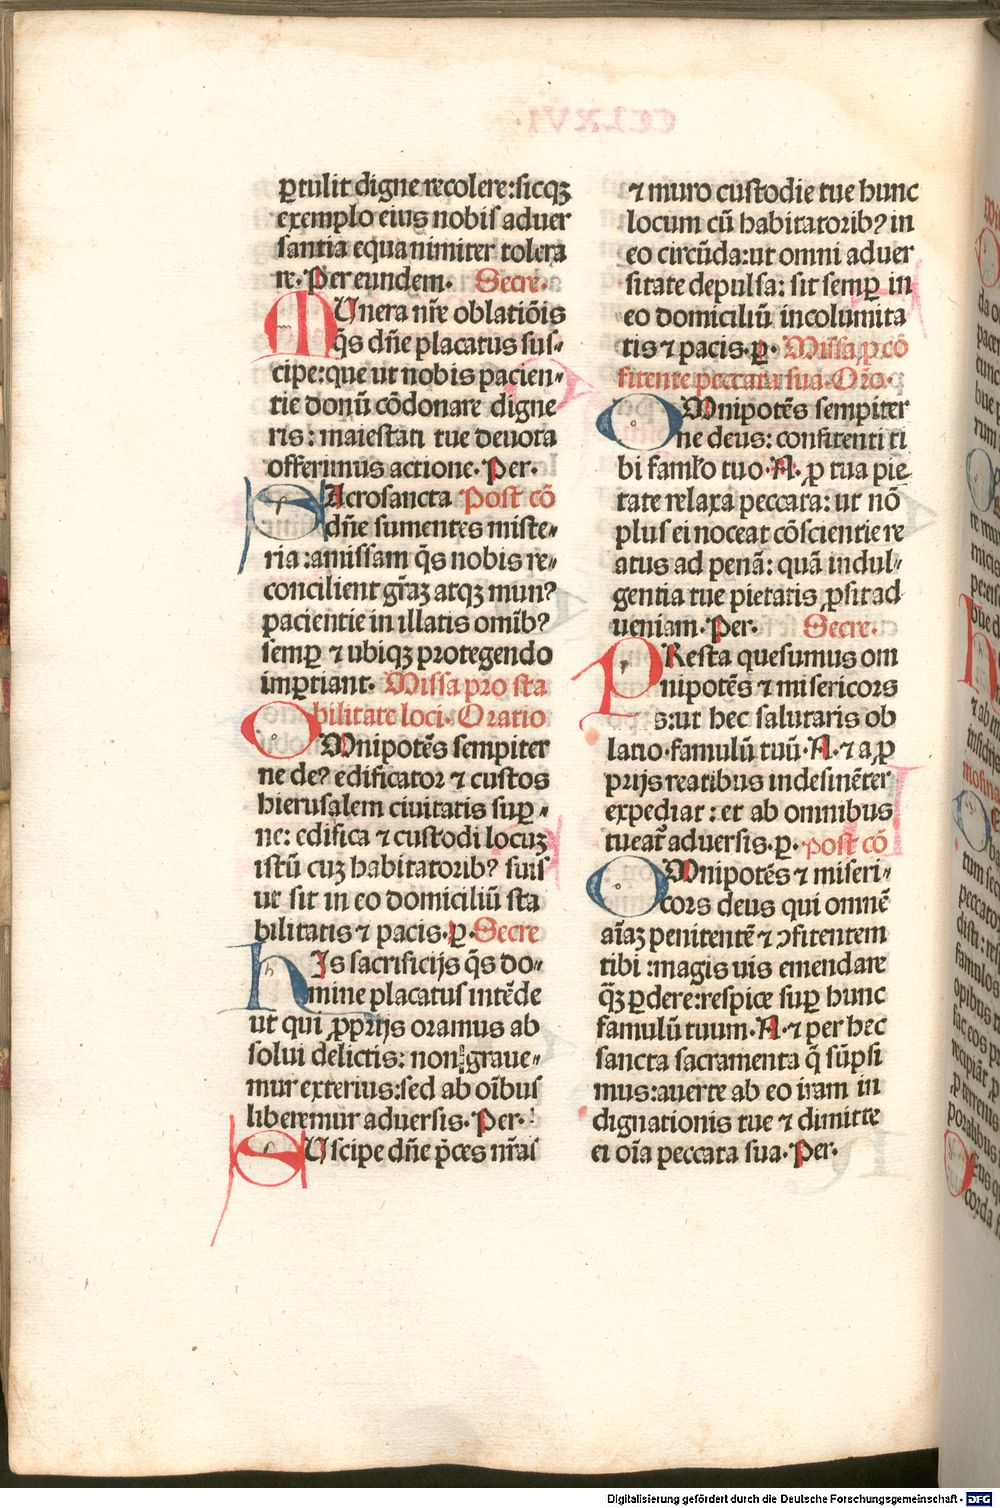 ꝑtulit digne recolere: sicqꝫ
exemplo eius nobis aduer
santia equanimiter tolera
re. Per eundem. Secre.
MUnera nr̄e oblatiōis
q̄s dn̄e placatus sus⸗
cipe: que ut nobis pacien⸗
tie donū cōdonare digne
ris: maiestati tue deuota
offerimus actione. Per.
SAcrosancta Post cō
dn̄e sumentes miste⸗
ria: amissam q̄s nobis re⸗
concilient gr̄aꝫ atqꝫ munꝰ
pacientie in illatis omībꝰ
semꝑ ⁊ ubiqꝫ protegendo
imꝑtiant. Missa pro sta
bilitate loci. Oratio
OMnipotēs sempiter
ne deꝰ edificator ⁊ custos
hierusalem ciuitatis suꝑ⸗
ne: edifica ⁊ custodi locuꝫ
istū cuꝫ habitatoribꝰ suis
ut sit in eo domiciliū sta
bilitatis ⁊ pacis. ꝑ. Secre
hIs sacrificijs q̄s do⸗
mine placatus intēde
ut qui ꝓprijs oramus ab
solui delictis: non graue⸗
mur exterius: sed ab oībus
liberemur aduersis. Per.
SUscipe dn̄e p̄ces nr̄as
⁊ muro custodie tue hunc
locum cū habitatoribꝰ in
eo circūda: ut omni aduer
sitate depulsa: sit semꝑ in
eo domiciliū incolumita
tis ⁊ pacis. ꝑ. Missa ꝓ cō
fitente peccata sua. Oŕo.
OMnipotēs sempiter
ne deus: confitenti ti
bi famło tuo. N. ꝓ tua pie
tate relaxa peccata: ut nō
plus ei noceat cōscientie re
atus ad penā: quā indul⸗
gentia tue pietatis ꝓsit ad
ueniam. Per. Secre.
PResta quesumus om
nipotēs ⁊ misericors
ds: ut hec salutaris ob
latio famulū tuū. N. ⁊ a ꝓ
prijs reatibus indesinēter
expediat: et ab omnibus
tueat᷑ aduersis. ꝑ. post cō
OMnipotēs ⁊ miseri⸗
cors deus qui omnē
aīaꝫ penitentē ⁊ ꝯfitentem
tibi: magis uis emendare
q̄ꝫ ꝑdere: respice suꝑ hunc
famulū tuum. N. ⁊ per hec
sancta sacramenta q̄ sūpsi
mus: auerte ab eo iram in
dignationis tue ⁊ dimitte
ei oīa peccata sua. Per.
Digitalisierung gefördert durch die Deutsche Forschungsgemeinschaft - DFG